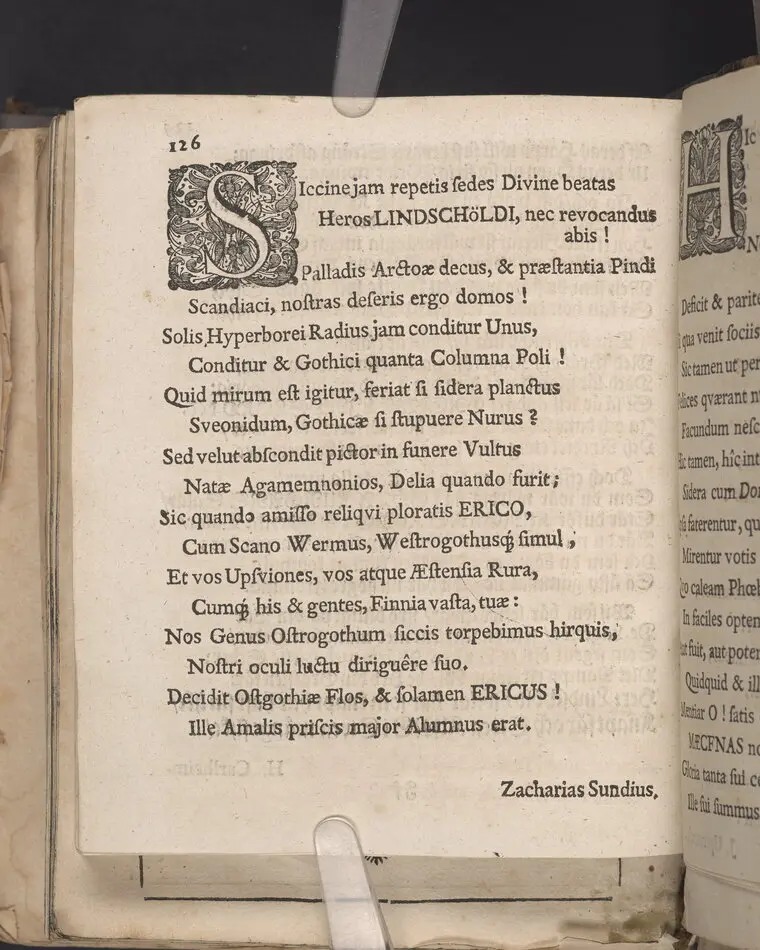 126
SIccine jam repetis ſedes Divine beatas
Heros LINDSCHöLDI, nec revocandus
abis !
Palladis Arctoæ decus, & præſtantia Pindi
Scandiaci, noſtras deſeris ergo domos !
Solis Hyperborei Radius jam conditur Unus,
Conditur & Gothici quanta Columna Poli !
Quid mirum eſt igitur, feriat ſi ſidera planctus
Sveonidum, Gothicæ ſi ſtupuere Nurus ?
Sed velut abſcondit pictor in funere Vultus
Natæ Agamemnonios, Delia quando furit;
Sic quando amiſſo reliqvi ploratis ERICO,
Cum Scano Wermus, Weſtrogothusq́; ſimul ;
Et vos Upſviones, vos atque Æſtenſia Rura,
Cumq́; his & gentes, Finnia vaſta, tuæ :
Nos Genus Oſtrogothum ſiccis torpebimus hirquis,
Noſtri oculi luctu diriguêre ſuo.
Decidit Oſtgothiæ Flos, & ſolamen ERICUS !
Ille Amalis priſcis major Alumnus erat.
Zacharias Sundius.
Ic
N
Deficit & parite
qua venit ſociis
Sic tamen ut per
dices qværant n
Facundum neſc
Hic tamen, hîc int
Sidera cum Do
faterentur, qu
Mirentur votis
caleam Phœb
In faciles optem
fuit, aut poter
Quidquid & ill
Mentiar O ! ſatis
MÆCENAS no
Gloria tanta ſul ce
Ille ſui ſummus